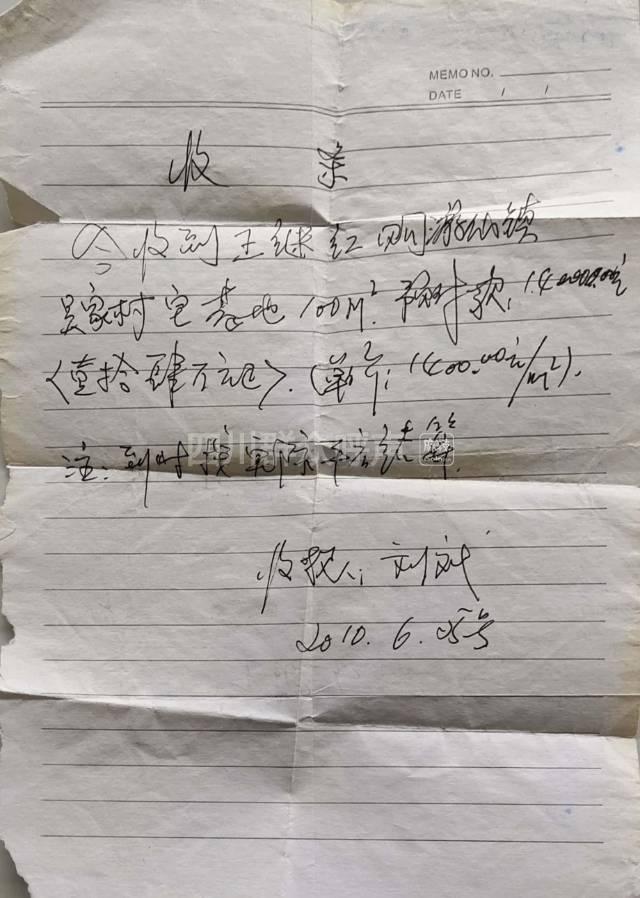 MEMO NO.
DATE / /
收 条
今收到王继红购游仙镇
吴家村宅基地100M². 预付款: 140000.00元
〈壹拾肆万元正〉. (单价: 1400.00元/m²).
注: 到时按实际平方结算.
收款人: 刘
2010. 6. 05号